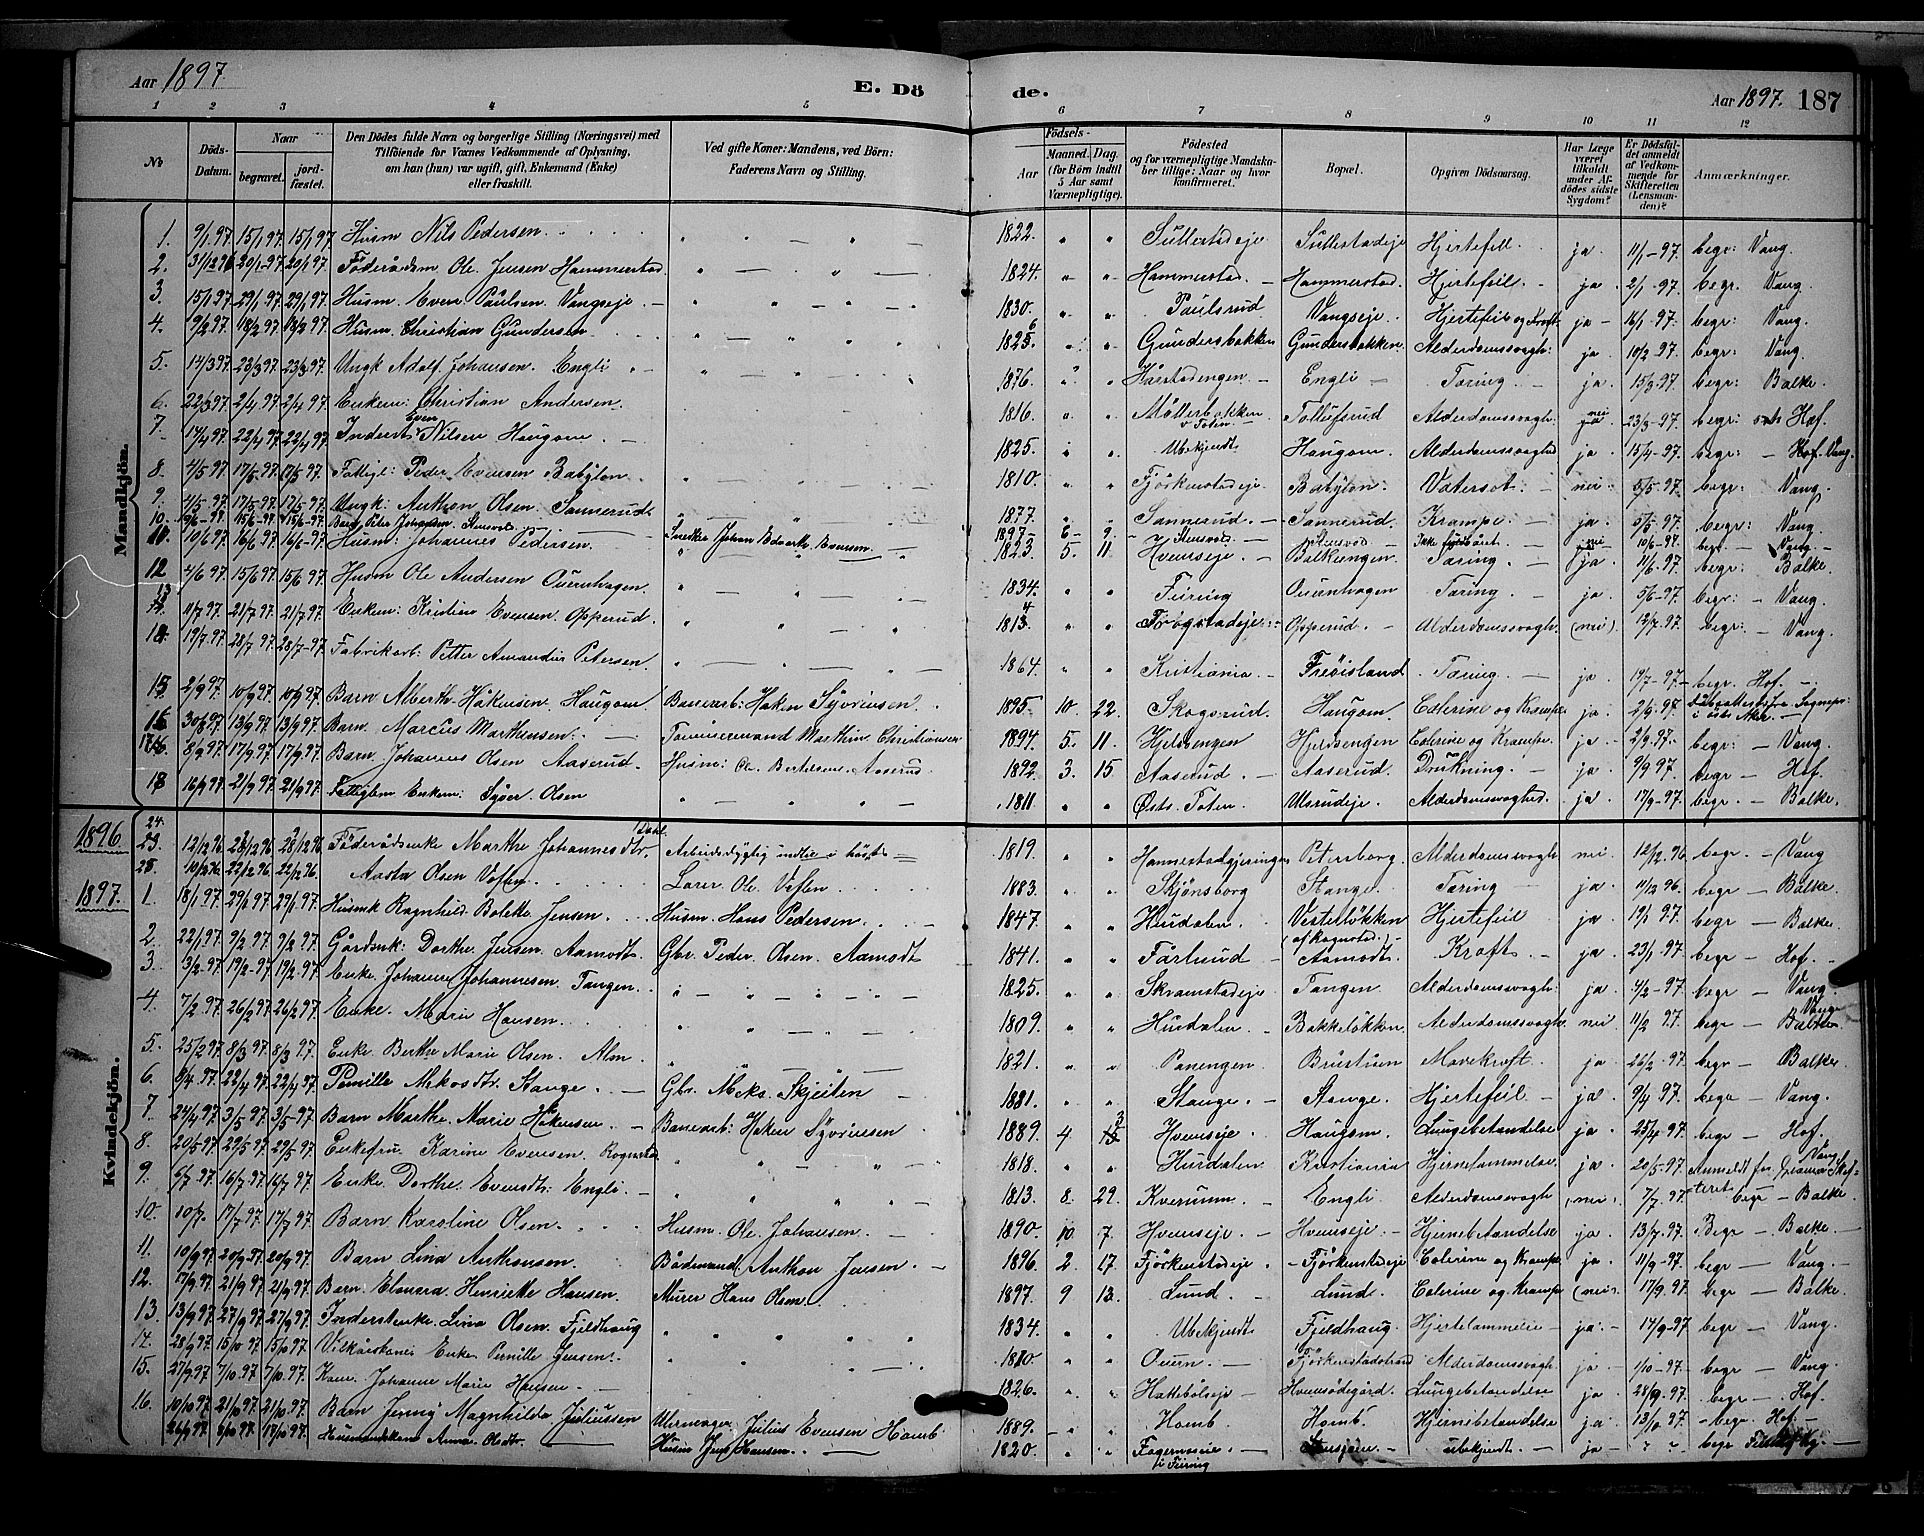 Aar 1897 E. Dö de. Aar 1897. 187
1 2 3 4 5 6 7 8 9 10 11 12
No
Döds-Datum.
Naar
begravet.
jordfæstet.
Den Dödes fulde Navn og borgerlige Stilling (Næringsvei) med
Tilföiende for Voxnes Vedkommende af Oplysning,
om han (hun) var ugift, gift, Enkemand (Enke)
eller fraskilt.
Ved gifte Koner: Mandens, ved Börn:
Faderens Navn og Stilling.
Födsels-
Aar
Maaned. Dag.
(for Börn indtil
5 Aar samt
Værnepligtige).
Födested
og for værnepligtige Mandska-
ber tillige: Naar og hvor
konfirmeret.
Bopæl.
Opgiven Dödsaarsag.
Har Læge
været
tilkaldt
under Af-
dödes sidste
Sygdom?
Er Dödsfal-
det anmeldt
af Vedkom-
mende for
Skifteretten
(Lensman-
den)?
Anmærkninger.
Mandkjön.
1. 9/1 97 15/1 97 15/1 97 Husm Nils Pedersen 1822. Sullestadeje Sullestadeje Hjertefeil. ja. 11/1-97. begr: Vang.
2. 31/12 96 20/1-97 20/1 97. Föderådsm. Ole Jensen Hammerstad 1824. Hammerstad. Hammerstad. Hjertefeil. ja. 2/1-97. begr. Vang.
3. 15/1 97 29/1 97 29/1 97. Husm. Even Paulsen. Vangseje. 1830. Paulsrud Vangseje. Hjertefeil og Kræft ja 16/1-97. begr: Vang.
4. 9/2 97 18/2 97 18/2 97. Husm. Christian Gundersen 1825. Gundersbakken Gundersbakken. Alderdomssvagh: ja. 10/2-97. begr: Vang.
5. 14/3 97 23/3 97 23/3 97. Ungk Adolf Johansen. Engli 1876. Hårstadengen. Engli Tæring. ja. 15/3-97. begr: Balke.
6. 22/3 97. 2/4 97. 2/4 97. Enkem: Christian Andersen. 1816. Möllerbakken v. Toten. Tollefsrud Alderdomssvagh: nei 23/3-97. begr: Hof.
7. 14/4 97 22/4 97 22/4 97. Inderst Even Nilsen Haugom. 1825. Ubekjendt Haugom. Alderdomssvaghed ja. 15/4-97. begr: Hof. Vang.
8. 4/5 97 17/5-97. 17/5 97. Fattigl: Peder Evensen Babylon. 1810. Fjörkenstadeje. Babylon. Vatersot. nei. 5/5-97. begr. Vang.
9. 4/5 97 17/5 97. 17/5 97. Ungk. Anthon Olsen. Sannerud 1877. Sannerud. Sannerud. Krampe. ja. 5/5-97. begr: Vang.
10. 9/6-97. 15/6-97. 15/6-97. Barn Peter Johansen Stensvol. Snedker Johan Edvarth Evensen. 1897. 6 9. Stensvol. Stensvol Ikke nei 10/6-97. begr. Vang.
11. 10/6 97 16/6 97. 16/6-97. Husm: Johannes Pedersen. 1823. 5. 11. Hvemseje. Balkeengen. Tæring. ja. 11/6-97. begr: Balke.
12 4/6 97. 15/6 97. 15/6 97. Husm Ole Andersen Ouernhagen. 1834. Feiring Ouernhagen Tæring. ja. 5/6-97. begr: Vang.
13. 11/7 97. 21/7 97. 21/7 97. Enkem: Kristian Evensen. Opperud. 1814. Frogstadeje. Opperud. Alderdomssvagh. (nei). 12/7-97. begr: Vang.
14. 19/7-97. 28/7 97. 28/7-97. Fabrikarb: Petter Amandus Petersen. 1864. Kristiania. Fröisland. Tæring. ja. 19/7-97. begr. Hof.
15 2/9 97 10/9 97. 10/9 97. Barn Alberth Håkensen Haugom. Banearb: Haken Syvrinsen. 1895. 10. 22. Skogsrud. Haugom. Colerine og Krampe. ja. 2/9.97.
16 30/8 97 13/9 97 13/9 97. Barn. Marcus Marthinsen. Tömmermand Marthin Christiansen 1894. 5. 11. Hjelsengen Hjelsengen Colerine og Krampe. ja 2/9-97. begr: Vang.
17. 8/9 97 17/9 97 17/9 97. Barn. Johannes Olsen Aaserud. Husm: Ole Bertelsen. Aaserud. 1892. 3. 15. Aaserud. Aaserud. Drukning. ja. 9/9 97. begr Hof.
18 16/9 97 21/9 97 21/9 97. Fattiglem Enkem: Syver Olsen 1811. Östr. Toten. Ulsrudeje. Alderdomssvaghed. ja. 17/9-97. begr. Balke.
1896. 24. 12/12 96 28/12 96 28/12 96 Föderådsenke Marthe Johannesdtr. Dahl. Arbeidsdygtig indtil i höst 1819. Hannestadgjeringen Petersborg. Alderdomssvagh nei 12/12.96. begr. Vang
25. 10/12 96. 22/12 96. 22/12 96. Aasta Olsen Veflen. Lærer Ole Veflen 1883. Skjönsborg Stange. Tæring ja. 11/12 96. begr Balke.
Kvindekjön.
1897. 1. 18/1 97. 29/1 97. 29/1 97. Husmk Ragnhild Bolette Jensen. Husm: Hans Pedersen. 1847. Hurdalen. Vesterlökken (af Rognstad.) Hjertefeil ja. 19/1 97. begr Balke.
2. 22/1 97. 9/2 97. 9/2 97. Gårdmk: Dorthe Jensen. Aamodt. Gbr. Peder Olsen. Aamodt 1841. Farlund Aamodt. Kræft. ja. 23/1 97. begr Hof.
3. 3/2-97. 19/2-97. 19/2-97. Enke. Johanne Johannesen. Tangen. 1825. Skramstadeje Tangen. Alderdomssvagh: ja. 4/2-97. begr Vang.
4. 7/2 97. 26/2 97 26/2 97. Enke. Marie Hansen. 1809. Hurdalen Bakkelökken. Alderdomssvagh. nei 11/2 97. begr Vang.
5. 25/2 97 8/3 97. 8/3 97. Enke Berthe Marie Olsen. Alm. 1821. Panengen Brustuen Mavekræft. ja 26/2-97. begr Balke
6. 8/4 97. 22/4 97. 22/4 97. Pernille Mikosdtr. Stange. Gbr. Meks. Skjeiten 1881. Stange. Stange. Hjertefeil ja. 9/4 97. begr Vang.
7. 24/4 97. 3/5-97. 3/5-97. Barn Marthe Marie Håkensen. Banearb: Haken Syvrinsen 1889. 4. 3 Hvemseje. Haugom. Lungebetændelse ja. 25/4-97. begr Hof.
8. 20/5 97. 29/5 97. 29/5 97. Enkefru Karine Evensen. Rognstad 1818. Hurdalen. Kristiania Hjernelammelse ja. 20/5-97. Vang.
9. 6/7-97. 16/7-97. 16/7-97. Enke. Dorthe Evensdtr. Engli. 1813. 8. 29. Kvernum Engli Alderdomssvagh (nei). 7/7.97. begr Balke.
10. 10/7. 17/7 97. 17/7 97. Barn Karoline Olsen. Husm Ole Johansen 1890. 10. 7. Hvemseje. Hvemseje. Hjernebetændelse ja. 13/7-97. Begr Balke.
11. 10/9 97 20/9-97. 20/9 97. Barn Lina Anthonsen. Bådsmand Anthon Jensen. 1896. 2. 17. Fjörkenstadeje Fjörkenstadeje Colerine og Krampe ja. 11/9-97. begr Vang.
12. 17/9 97. 21/9 97. 21/9 97. Barn. Elvara Henriette Hansen. Murer Hans Olsen. 1897. 9 13. Lund. Lund. Colerine og Krampe (nei). 17/9.97. begr Balke.
13. 13/9 97. 27/9 97. 27/9 97. Inderstenke. Lina Olsen. Fjeldhaug 1834. Ubekjendt Fjeldhaug. Hjertelammelse ja. 14/9-97 begr Vang.
14. 28/9 97 15/10 97 15/10 97. Vilkårskone Enke Pernille Jensen. 1810. Ouern. Fjörkenstadstrand Alderdomssvagh. ja 1/10-97. begr Vang.
15. 27/9 97. 7/10 97. 7/10 97. Kone Johanne Marie Hansen. 1826. Hattebölseje Hvemsödegård. Lungebetændelse ja. 28/9.97. begr Hof.
16. 10/10 97 21/10 97. 21/10 97. Barn Jenny Magnhilda Juliussen Urmager Julius Evensen Homb 1889. Homb. Homb. Hjernebetændelse ja. 13/10 97. begr Hof
26/9 97. 8/10 97. Husmandskone Anna Olsdtr. Husm Jens Hansen. 1820. Fagernæseie i Feiring ubekjendt. ja begr